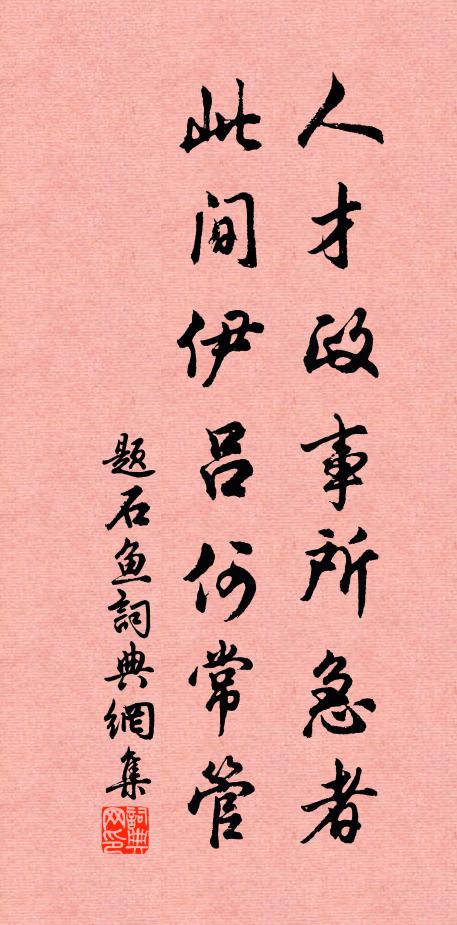 人才政事所急者
此间伊吕何常管
题石鱼詞典網集
詞典网印